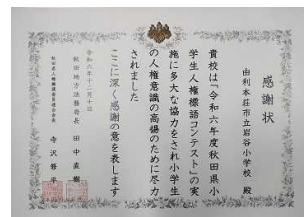 感謝状
由利本荘市立岩谷小学校 殿
貴校は「令和六年度秋田県小
学生人権標語コンテスト」の実
施に多大な協力をされ小学生
の人権意識の高揚のために尽力
されました
ここに深く感謝の意を表します
令和六年十二月十日
秋田地方法務局長 田中直樹
秋田県人権擁護委員連合会長 寺沢